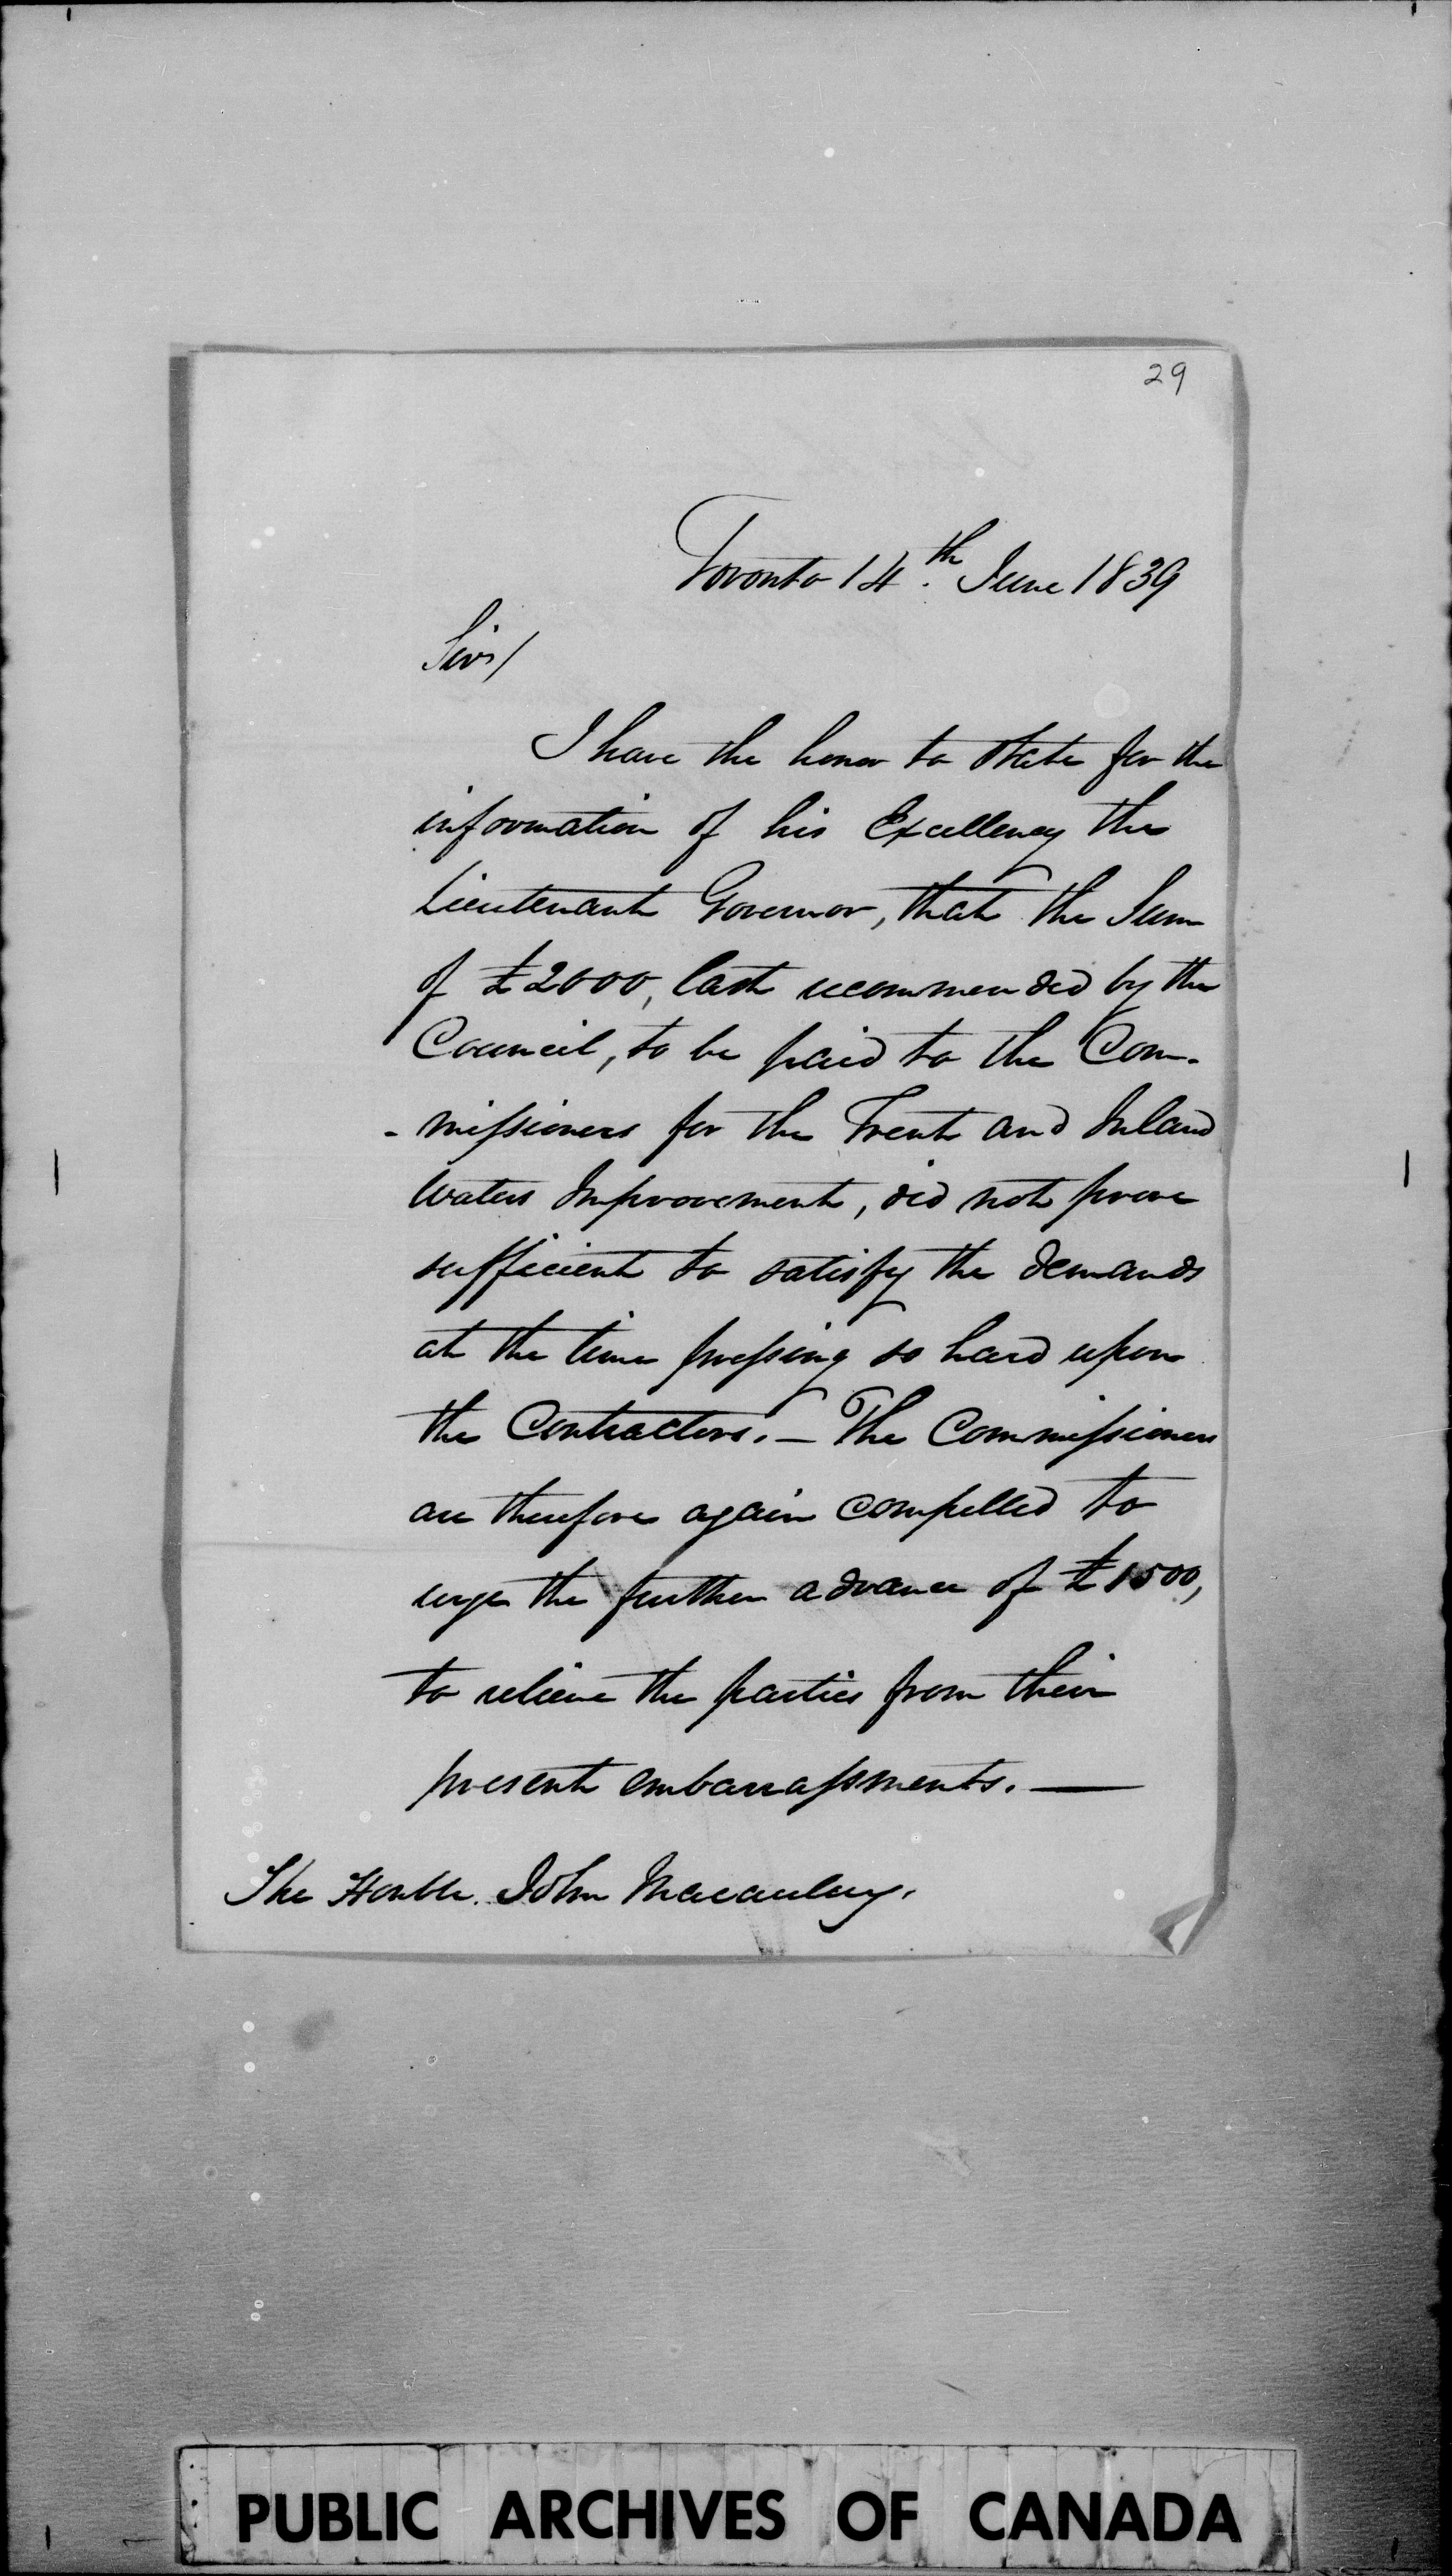 29
Toronto 14th. June 1839
Sir/
I have the honor to state for the
information of his Excellency the
Lieutenant Governor, that the Sum
of £2000, last recommended by the
Council, to be paid to the Com-
-missioners for the Trent and Inland
Waters Improvement, did not prove
sufficient to satisfy the demands
at the time pressing so hard upon
the Contractors. – The Commissioners
are therefore again compelled to
urge the further advance of £1500,
to relieve the parties from their
present embarrassments. —
The Honble. John Macaulay.
PUBLIC ARCHIVES OF CANADA